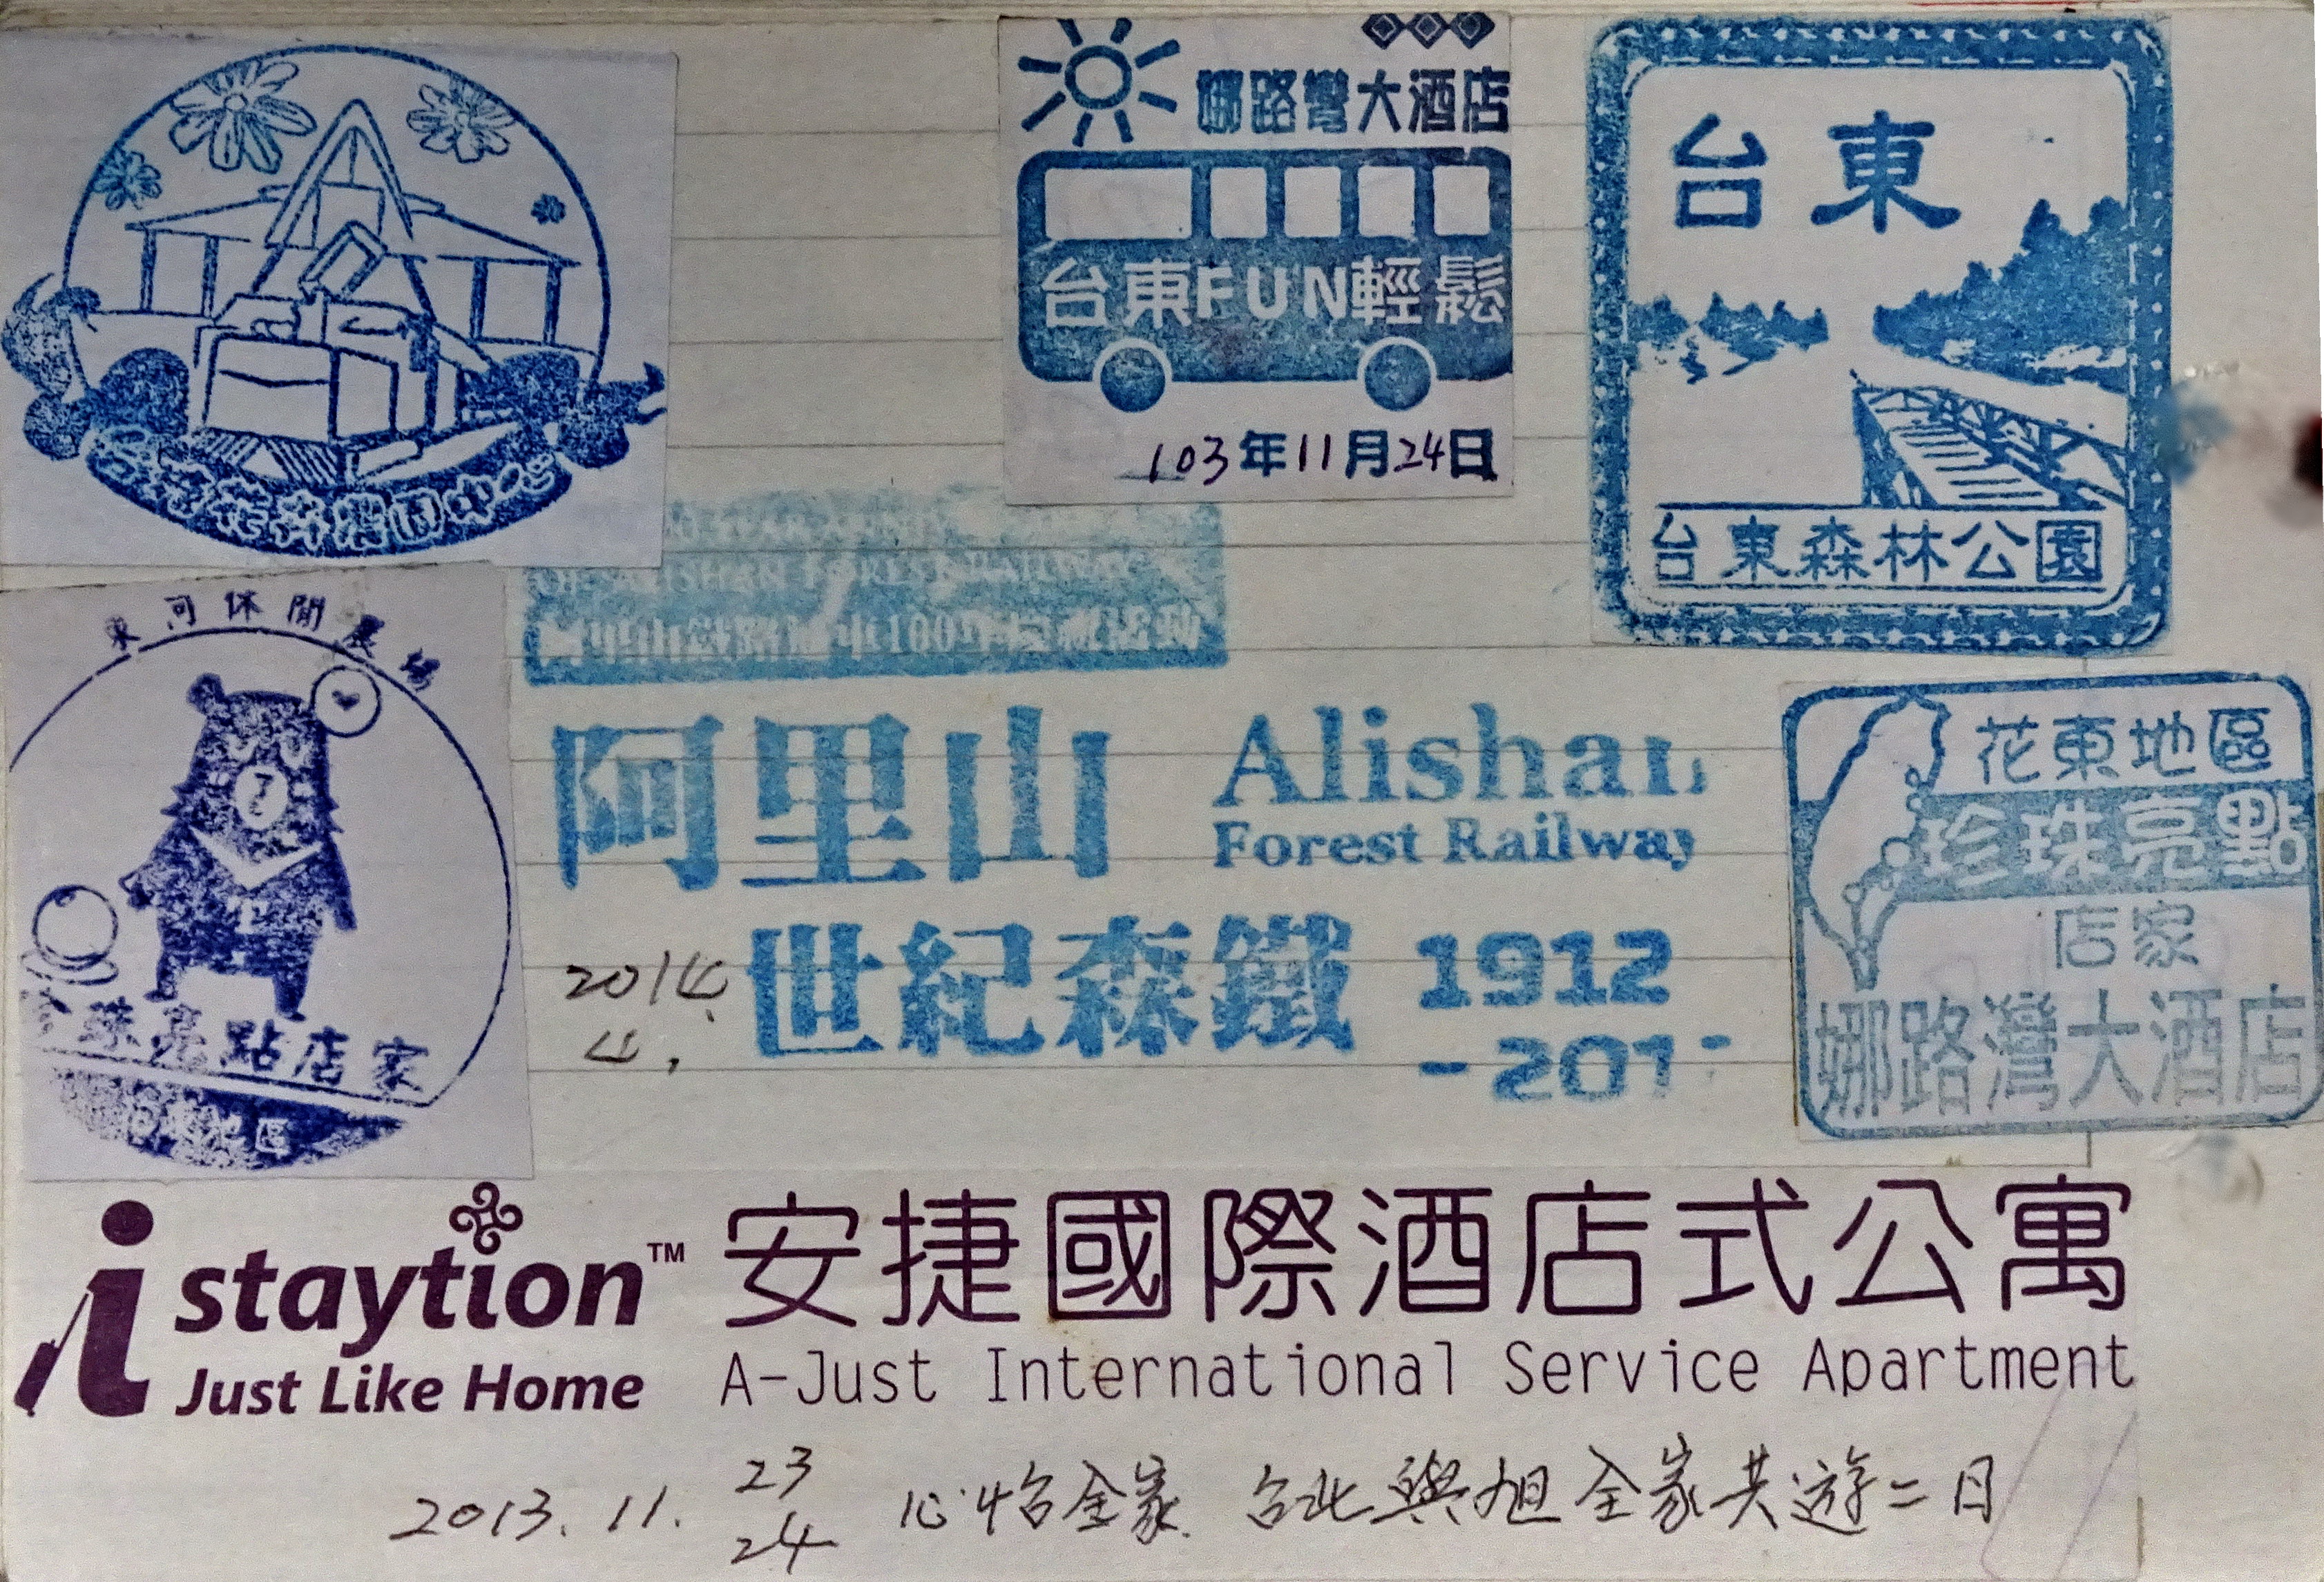 娜路彎大酒店
台東FUN輕鬆
103年11月24日
台東
台東森林公園
東河休閒農場
珠亮點店家
阿里山
Alishan
Forest Railway
世紀森鐵
1912
-201
2014.
4.
花東地區
珍珠亮點
店家
娜路灣大酒店
i staytion™
Just Like Home
安捷國際酒店式公寓
A-Just International Service Apartment
2013. 11. 23
24
心怡全家 台北與旭全家共遊二日